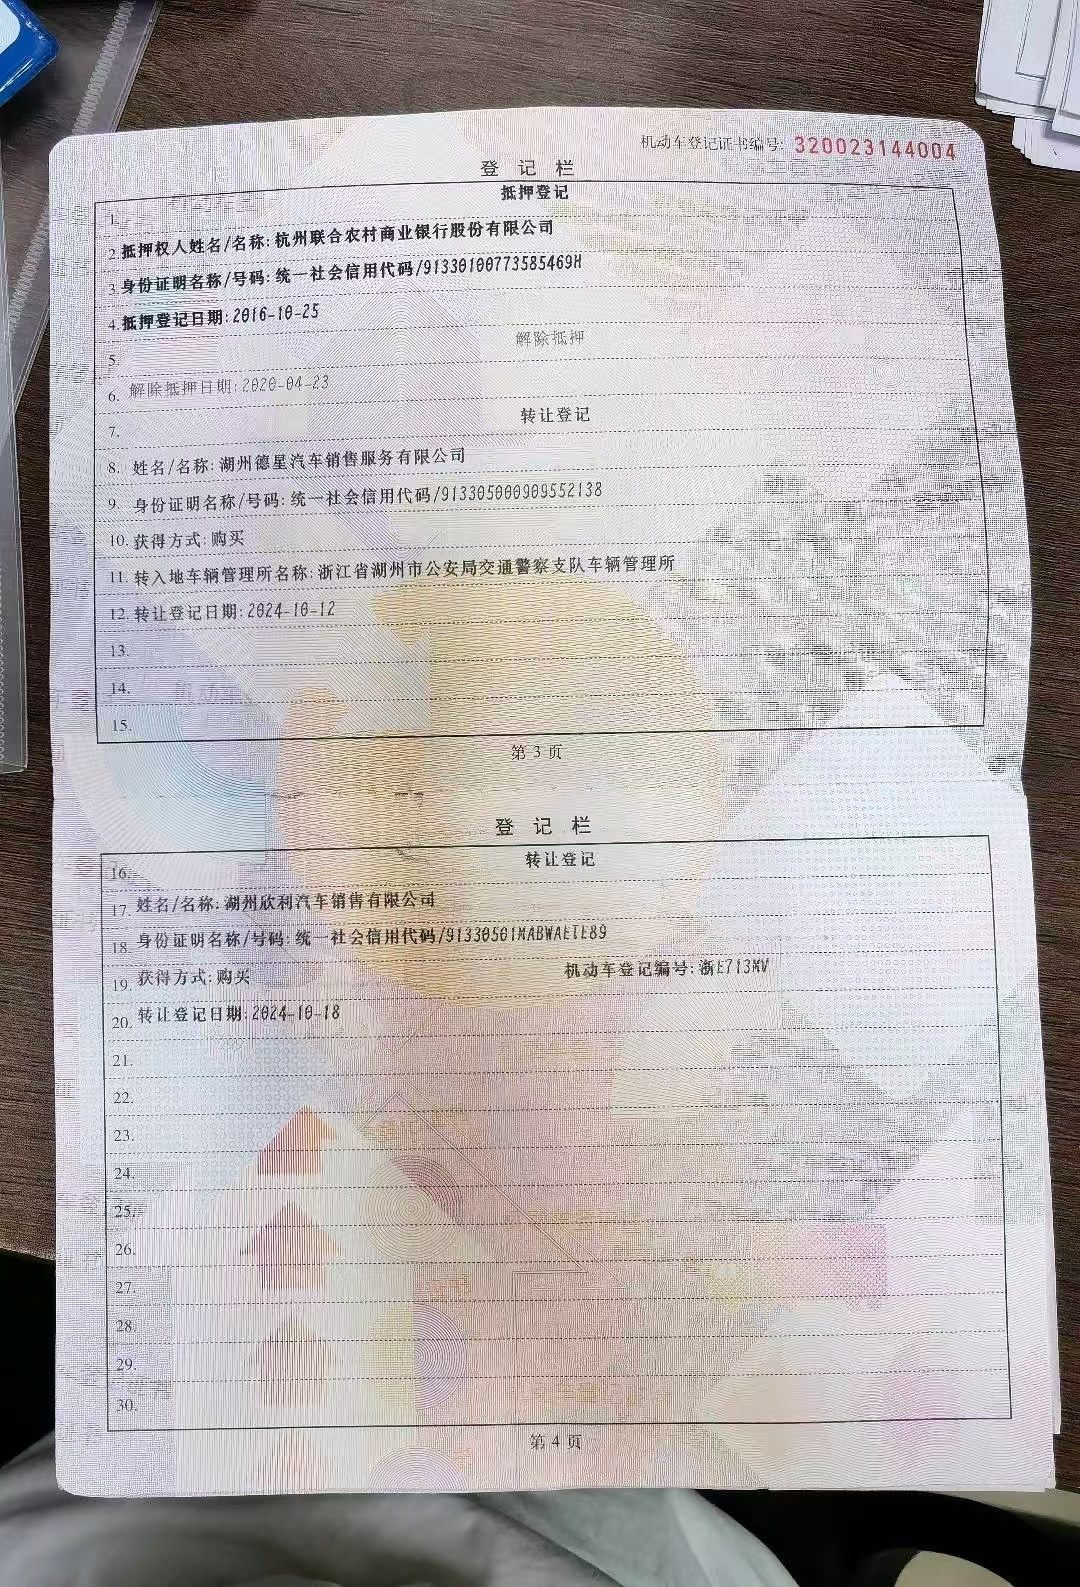 机动车登记证书编号: 320023144004
登 记 栏
抵押登记
1.
2. 抵押权人姓名/名称: 杭州联合农村商业银行股份有限公司
3. 身份证明名称/号码: 统一社会信用代码/91330100773585469H
4. 抵押登记日期: 2016-10-25
解除抵押
5.
6. 解除抵押日期: 2020-04-23
转让登记
7.
8. 姓名/名称: 湖州德星汽车销售服务有限公司
9. 身份证明名称/号码: 统一社会信用代码/913305000909552138
10. 获得方式: 购买
11. 转入地车辆管理所名称: 浙江省湖州市公安局交通警察支队车辆管理所
12. 转让登记日期: 2024-10-12
13.
14.
15.
第 3 页
登 记 栏
16. 转让登记
17. 姓名/名称: 湖州欣利汽车销售有限公司
18. 身份证明名称/号码: 统一社会信用代码/91330501MABWAETE89
19. 获得方式: 购买 机动车登记编号: 浙E713MV
20. 转让登记日期: 2024-10-18
21.
22.
23.
24.
25.
26.
27.
28.
29.
30.
第 4 页